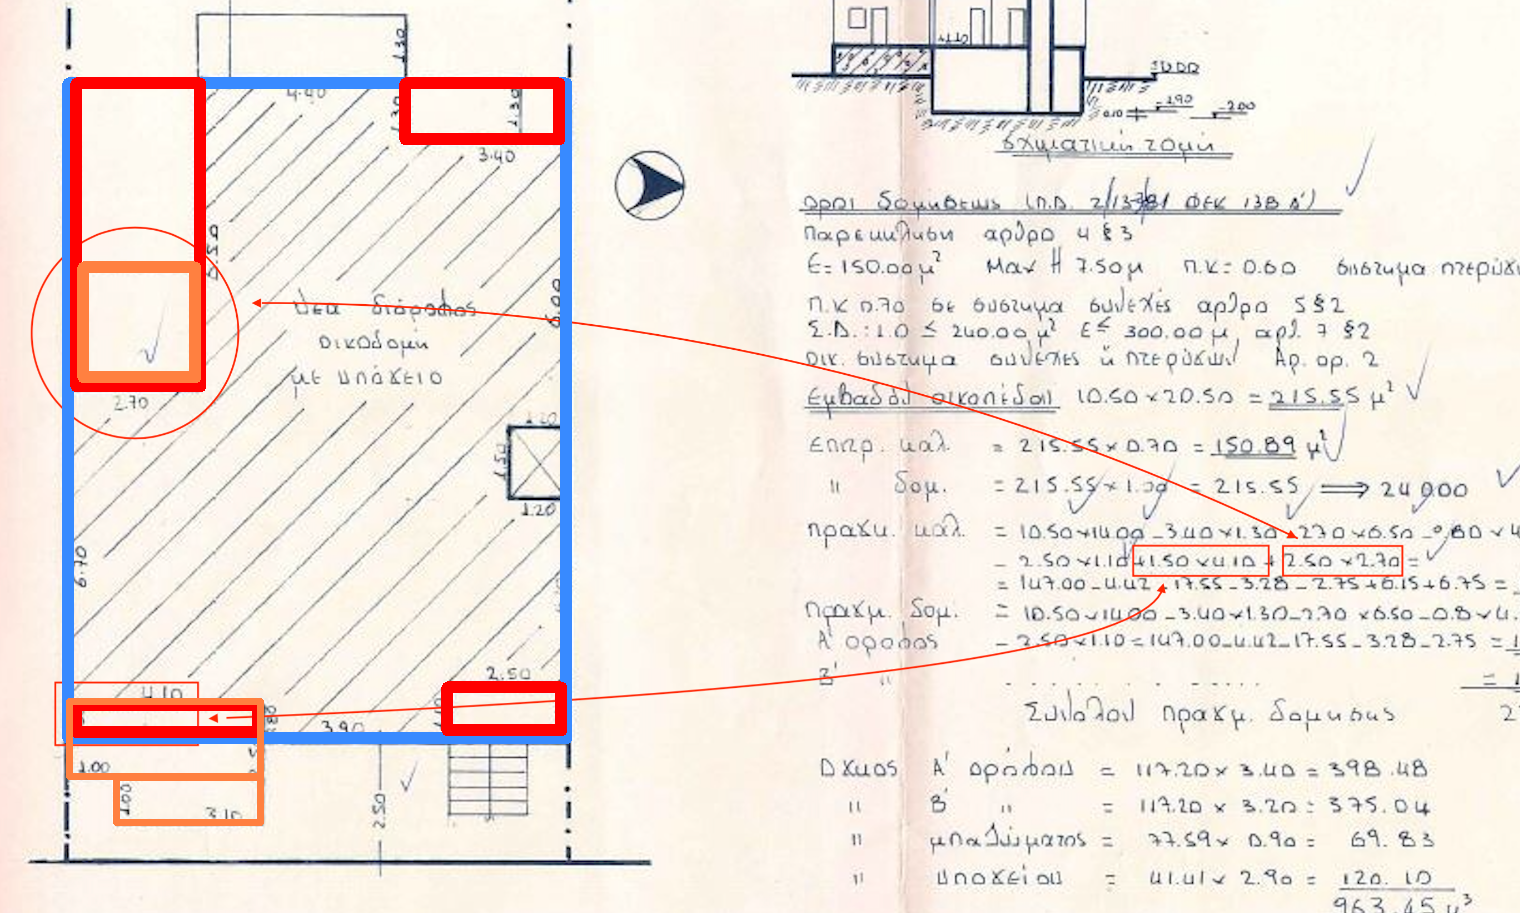 1.30
4.40
1.30
1.30
3.40
6.50
6.00
Νεα διόροφος
οικοδομή
με υπόγειο
2.70
1.20
1.50
1.20
6.70
2.50
4.10
1.10
.80
3.90
1.00
1.00
3.10
2.50
+1.10
±0.00
0.10
-2.90
-3.00
σχηματική τομή
Οροι δομήσεως (Π.Δ. 2/13-3-81 ΦΕΚ 138 Δ')
Παρέκκλιση αρθρο 4 § 3
Ε=150.00 μ² Max H 7.50μ Π.Κ= 0.60 συστημα πτερύγω
Π.Κ 0.70 σε συστημα συνεχές αρθρο 5 § 2
Σ.Δ.: 1.0 ≤ 240.00 μ² Ε≤ 300.00 μ, αρθ. 7 § 2
Οικ. συστημα συνεχες ή πτερύγων Αρ. ορ. 2
Εμβαδόν οικοπέδου 10.50 × 20.50 = 215.55 μ²
Επιτρ. καλ. = 215.55 × 0.70 = 150.89 μ²
" δομ. = 215.55 × 1.00 = 215.55 ⟹ 240.00
πραγμ. καλ. = 10.50×14.00 - 3.40×1.30 - 2.70×6.50 - 0.80×4
- 2.50×1.10 +1.50×4.10 + 2.50×2.70 =
= 147.00-4.42-17.55-3.28-2.75+6.15+6.75 =
πραγμ. δομ. = 10.50×14.00-3.40×1.30-2.70×6.50-0.8×4.
Α' οροφος - 2.50×1.10=147.00-4.42-17.55-3.28-2.75 =
Β' "
Σύνολον πραγμ. δομησης
Ογκος Α' ορόφου = 117.20 × 3.40 = 398.48
" Β' " = 117.20 × 3.20 = 375.04
" μπαζώματος = 77.59 × 0.90 = 69.83
" υπογείου = 41.41 × 2.90 = 120.10
963.45 μ³